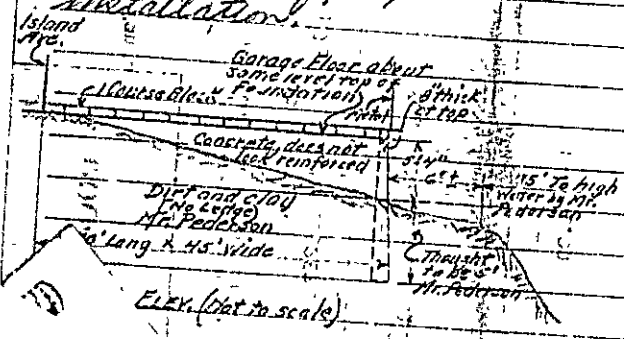 installation.
Island
Ave.
Garage Floor about
same level top of
Foundation
1 Course Block
8" thick
at top
Concrete does not
look reinforced
5'
6"±
15' To high
water by Mr.
Pederson
Dirt and clay
(No Ledge)
Mr. Pederson
Long x 45' wide
Thought
to be 5'
Mr. Pederson
Elev. (Not to scale)